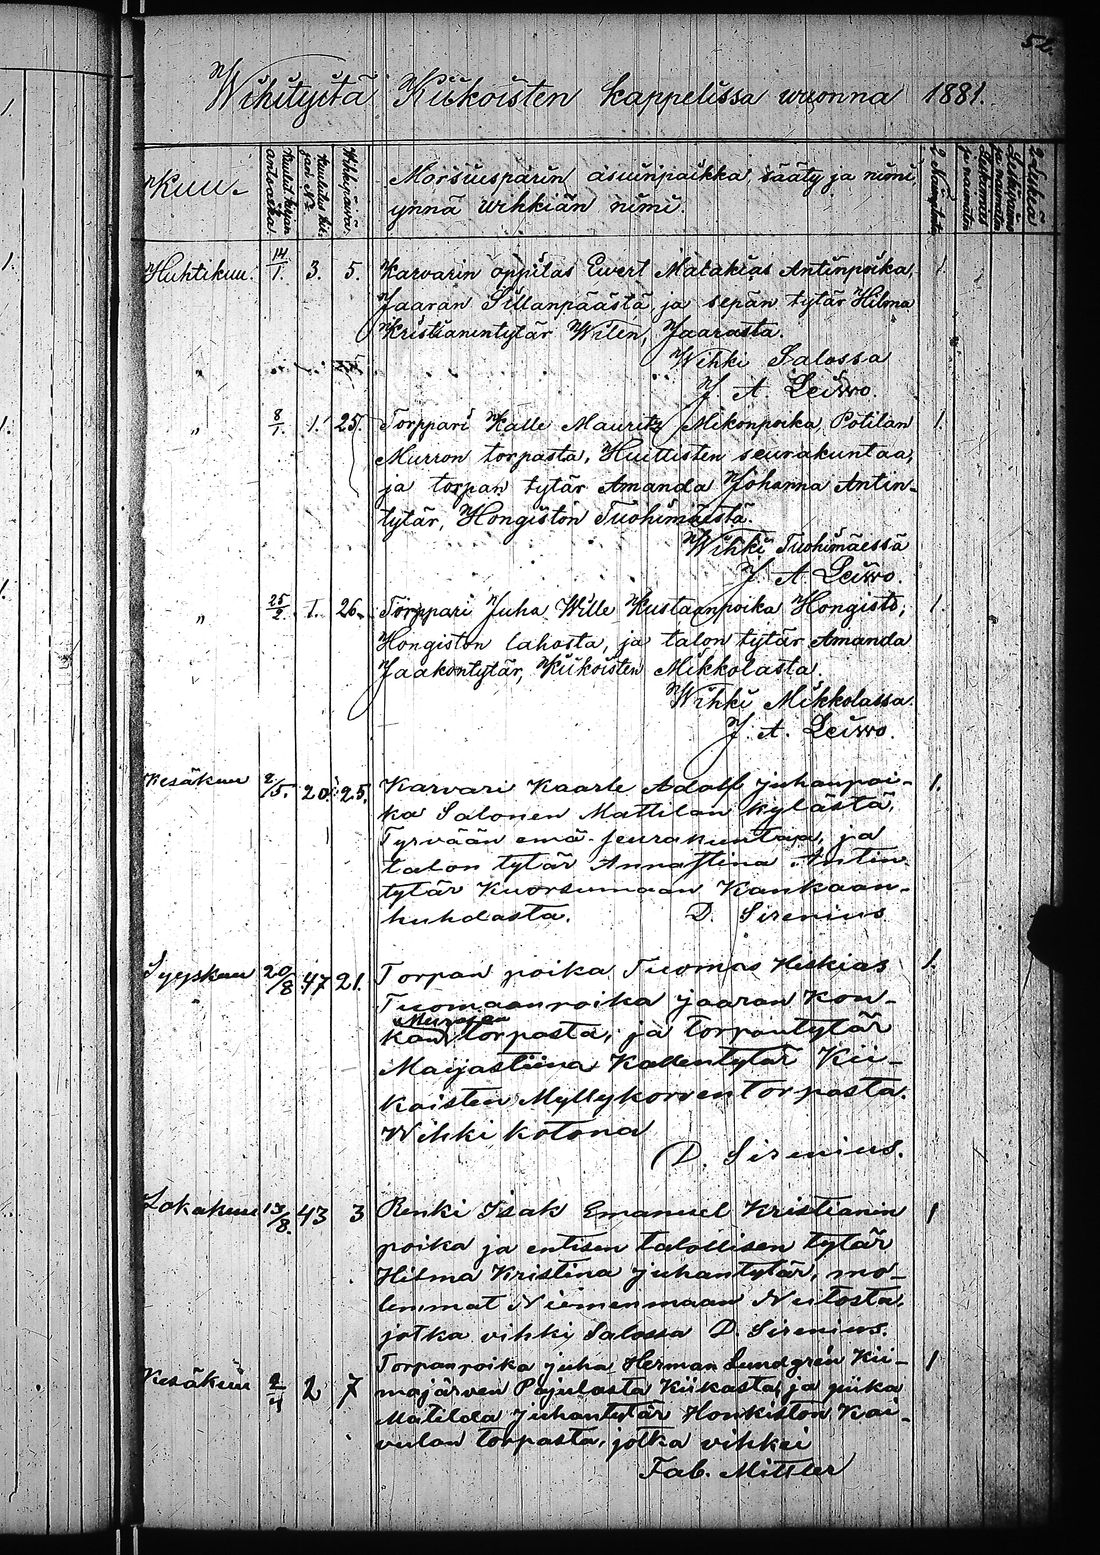 52.
Wihityitä Kiikoisten kappelissa wuonna 1881.
Kuu.
Kuulut. kirjan antwosta.
Kuulutus kirjan No
Wihkipäivä.
Morsiusparin asuinpaikka, sääty ja nimi,
ynnä wihkiän nimi.
Huhtikuu. 14/1. 3. 5. Karvarin oppilas Ewert Malakias Antinpoika, 1.
Jaaran Sillanpäästä, ja sepän tytär Hilma
Kristianentytär Wilen, Jaarasta.
Wihki Salossa
J. A. Leiwo.
" 8/1. 1. 25. Torppari Kalle Mauritz Mikonpoika, Potilan 1.
Murron torpasta, Huittisten seurakuntaa,
ja torpan tytär Amanda Johanna Antin-
tytär, Hongiston Tuohimäestä.
Wihki Tuohimäessä
J. A. Leiwo.
" 25/2. 1. 26. Torppari Juha Wille Kustaanpoika Hongisto, 1.
Hongiston lahosta, ja talon tytär Amanda
Jaakontytär, Kiikoisten Mikkolasta.
Wihki Mikkolassa.
J. A. Leiwo.
Kesäkuu 2/5. 20. 25. Karvari Kaarle Adolf Juhanpoi- 1.
ka Salonen Mattilan kylästä,
Tyrvään emä-seurakuntaa, ja
talon tytär Annastiina Antin
tytär Kuorsumaan Kankaan-
huhdasta. D. Sirenius
Syyskuu 20/8 47 21. Torpan poika Tuomas Heskias 1.
Tuomaanpoika Jaaran Kou-
kan torpasta, ja torpantytär
Maijastiina Kallentytär Kii-
kaisten Myllykorven torpasta.
Wihki kotona
D. Sirenius.
Lokakuu 13/8. 43 3 Renki Isak Emanuel Kristianin 1
poika ja entisen talollisen tytär
Hilma Kristina Juhantytär, mo-
lemmat Niemenmaan Neitosta,
jotka vihki Salossa D. Sirenius.
Kesäkuu 2/4 2 7 Torpanpoika Juha Herman Lundgrén Kii- 1
majärven Pajulasta Kiikasta, ja piika
Matilda Juhantytär Honkiston Kai-
vulan torpasta, jotka vihkei
Fab. Mittler